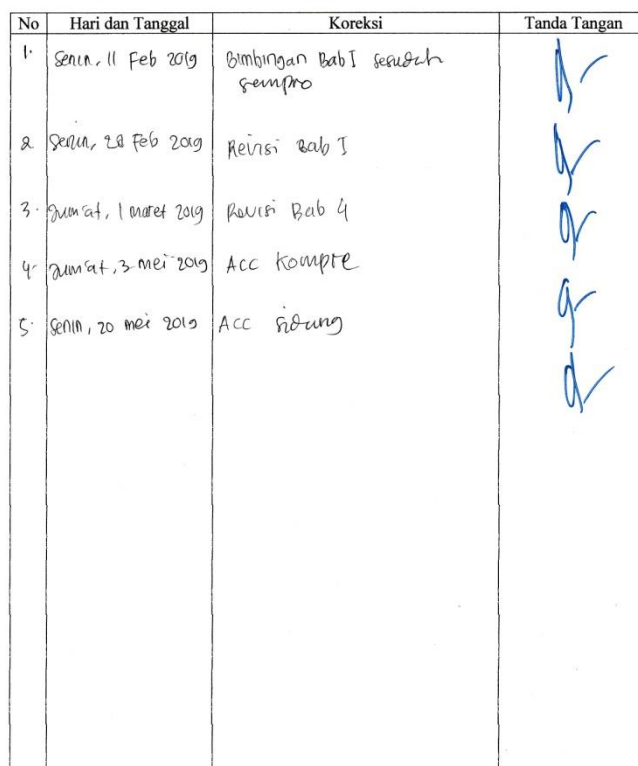 No Hari dan Tanggal Koreksi Tanda Tangan
1. Senin, 11 Feb 2019 Bimbingan Bab I sesudah
sempro
2 Senin, Feb 2019 Revisi Bab I
3. Jum'at, 1 maret 2019 Revisi Bab 4
4. Jum'at, 3 mei 2019 ACC Kompre
5. Senin, 20 mei 2019 ACC sidang